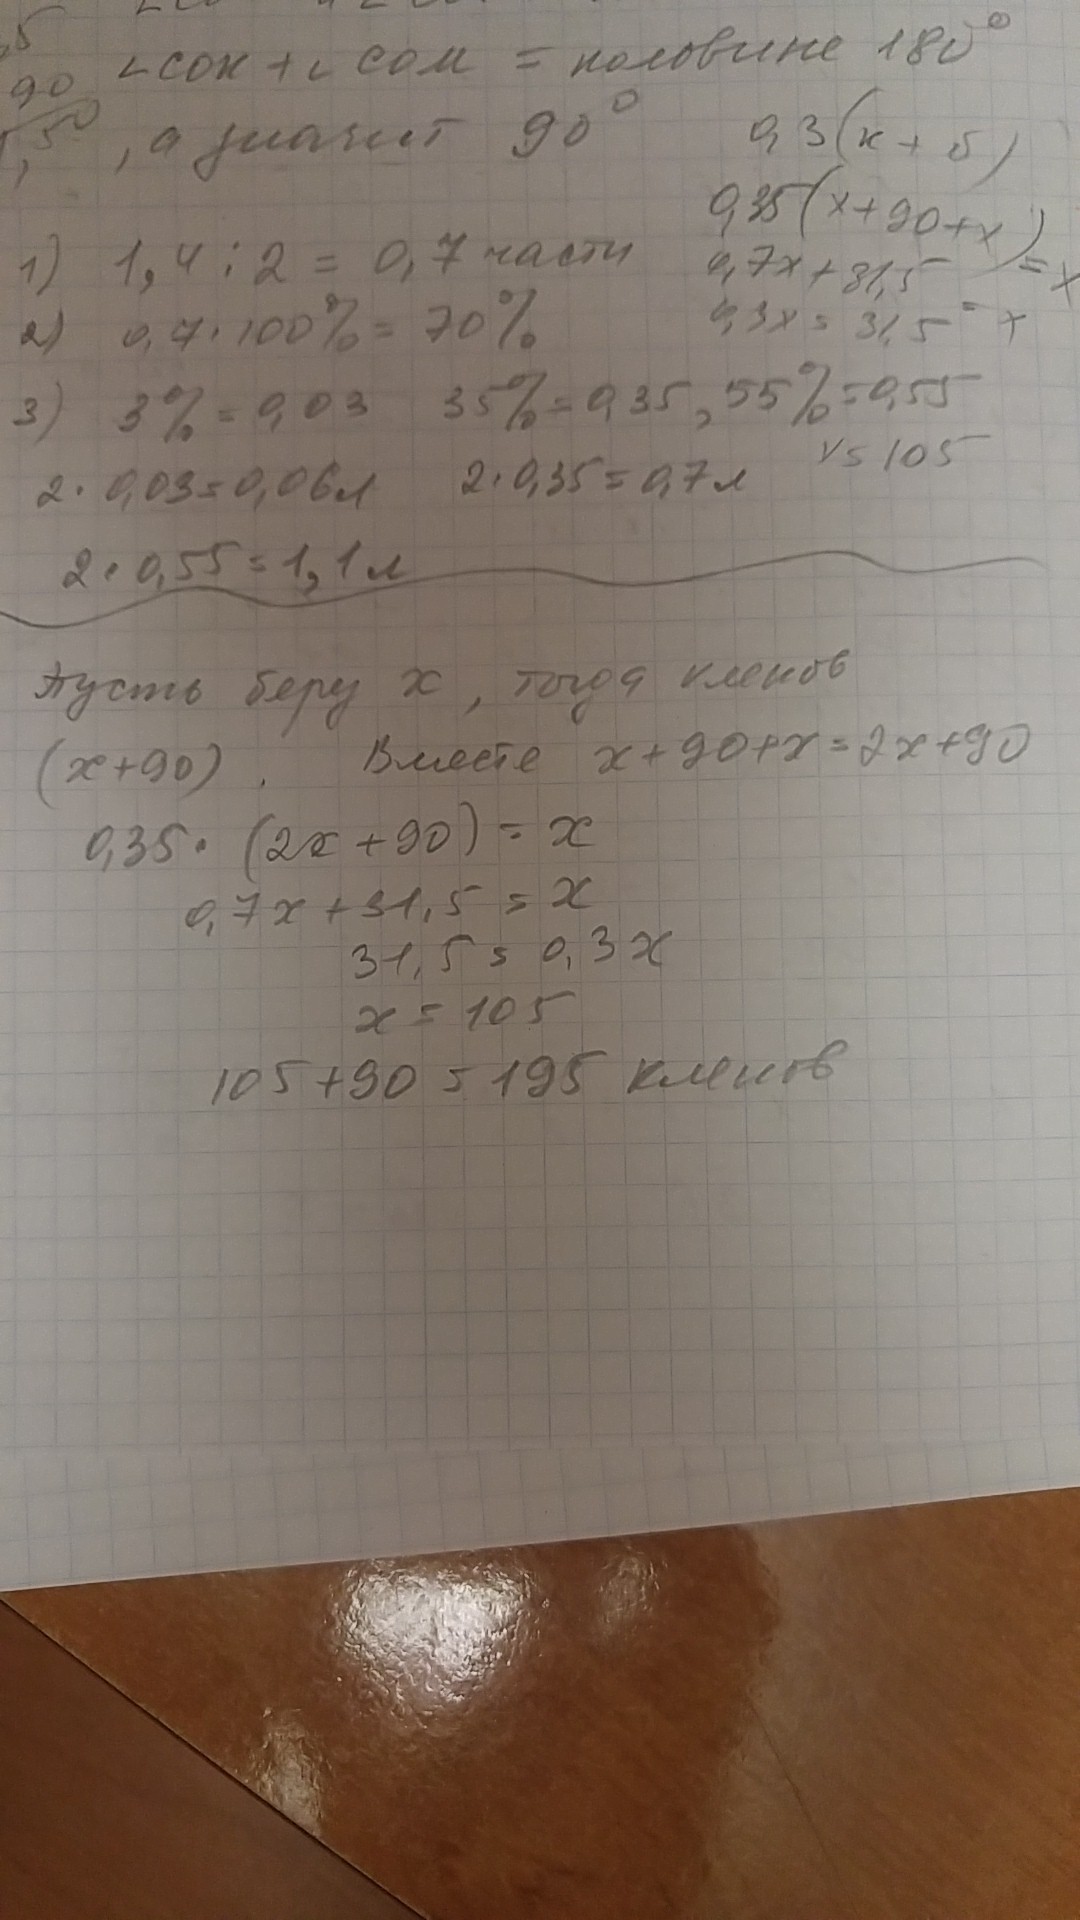 ,5
90
∠COK + ∠COM = половине 180°
, а значит 90°
0,3(x + 5)
0,35(x+90+x) = x
1) 1,4 : 2 = 0,7 части
0,7x + 31,5 = x
2) 0,7 · 100% = 70%
0,3x = 31,5
3) 3% = 0,03 35% = 0,35, 55% = 0,55
x = 105
2 · 0,03 = 0,06л 2 · 0,35 = 0,7л
2 · 0,55 = 1,1л
Пусть беру x, тогда кленов
(x+90). Вместе x+90+x = 2x+90
0,35 · (2x + 90) = x
0,7x + 31,5 = x
31,5 = 0,3x
x = 105
105 + 90 = 195 кленов